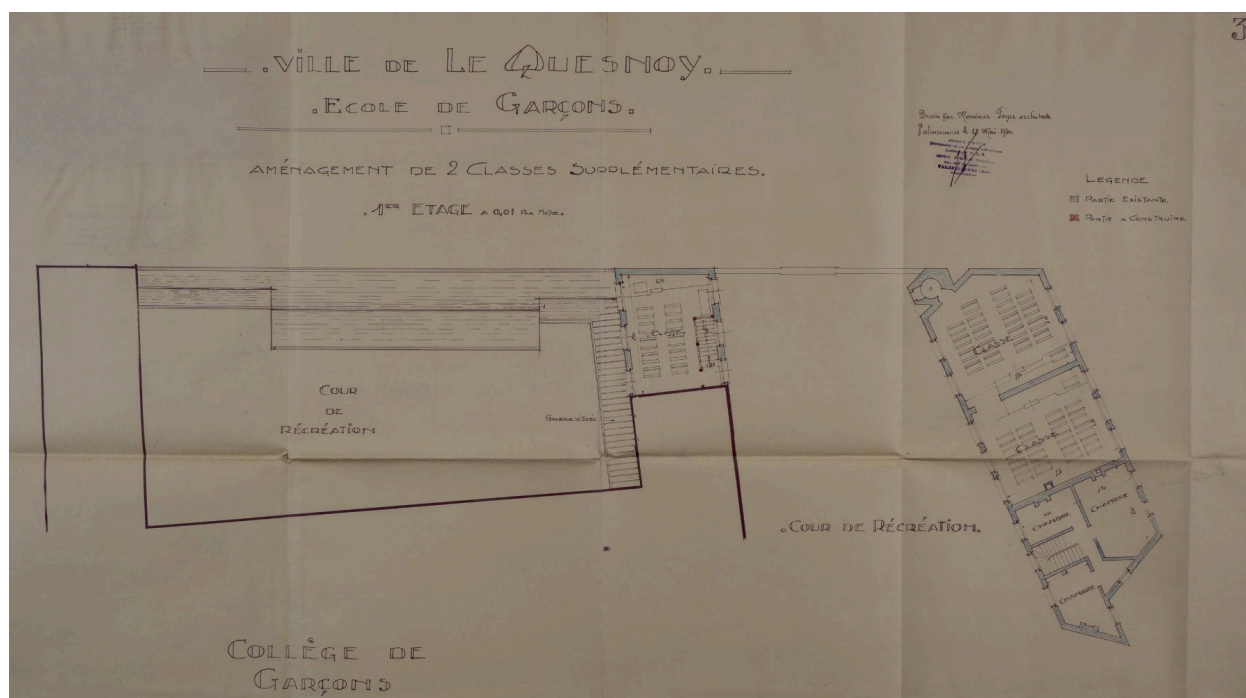 3
.VILLE DE LE QUESNOY.
.ECOLE DE GARÇONS.
AMÉNAGEMENT DE 2 CLASSES SUPPLÉMENTAIRES.
.1ER ETAGE A 0,01 PAR MÈTRE.
Dressé par Monsieur architecte
Valenciennes le Mai
LEGENDE
PARTIE EXISTANTE
PARTIE A CONSTRUIRE
CLASSE
CLASSE
CLASSE
COUR
DE
RÉCRÉATION
GALERIE VITRÉE
CHAMBRE
CHAMBRE
CHAMBRE
.COUR DE RÉCRÉATION.
COLLÈGE DE
GARÇONS